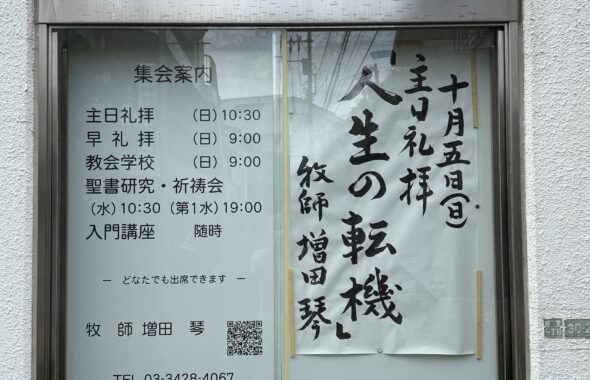 集会案内
主日礼拝 (日) 10:30
早礼拝 (日) 9:00
教会学校 (日) 9:00
聖書研究・祈祷会
(水) 10:30 (第1水) 19:00
入門講座 随時
― どなたでも出席できます ―
牧師 増田 琴
TEL 03-3428-4067
十月五日(日)
主日礼拝
「人生の転機」
牧師 増田琴